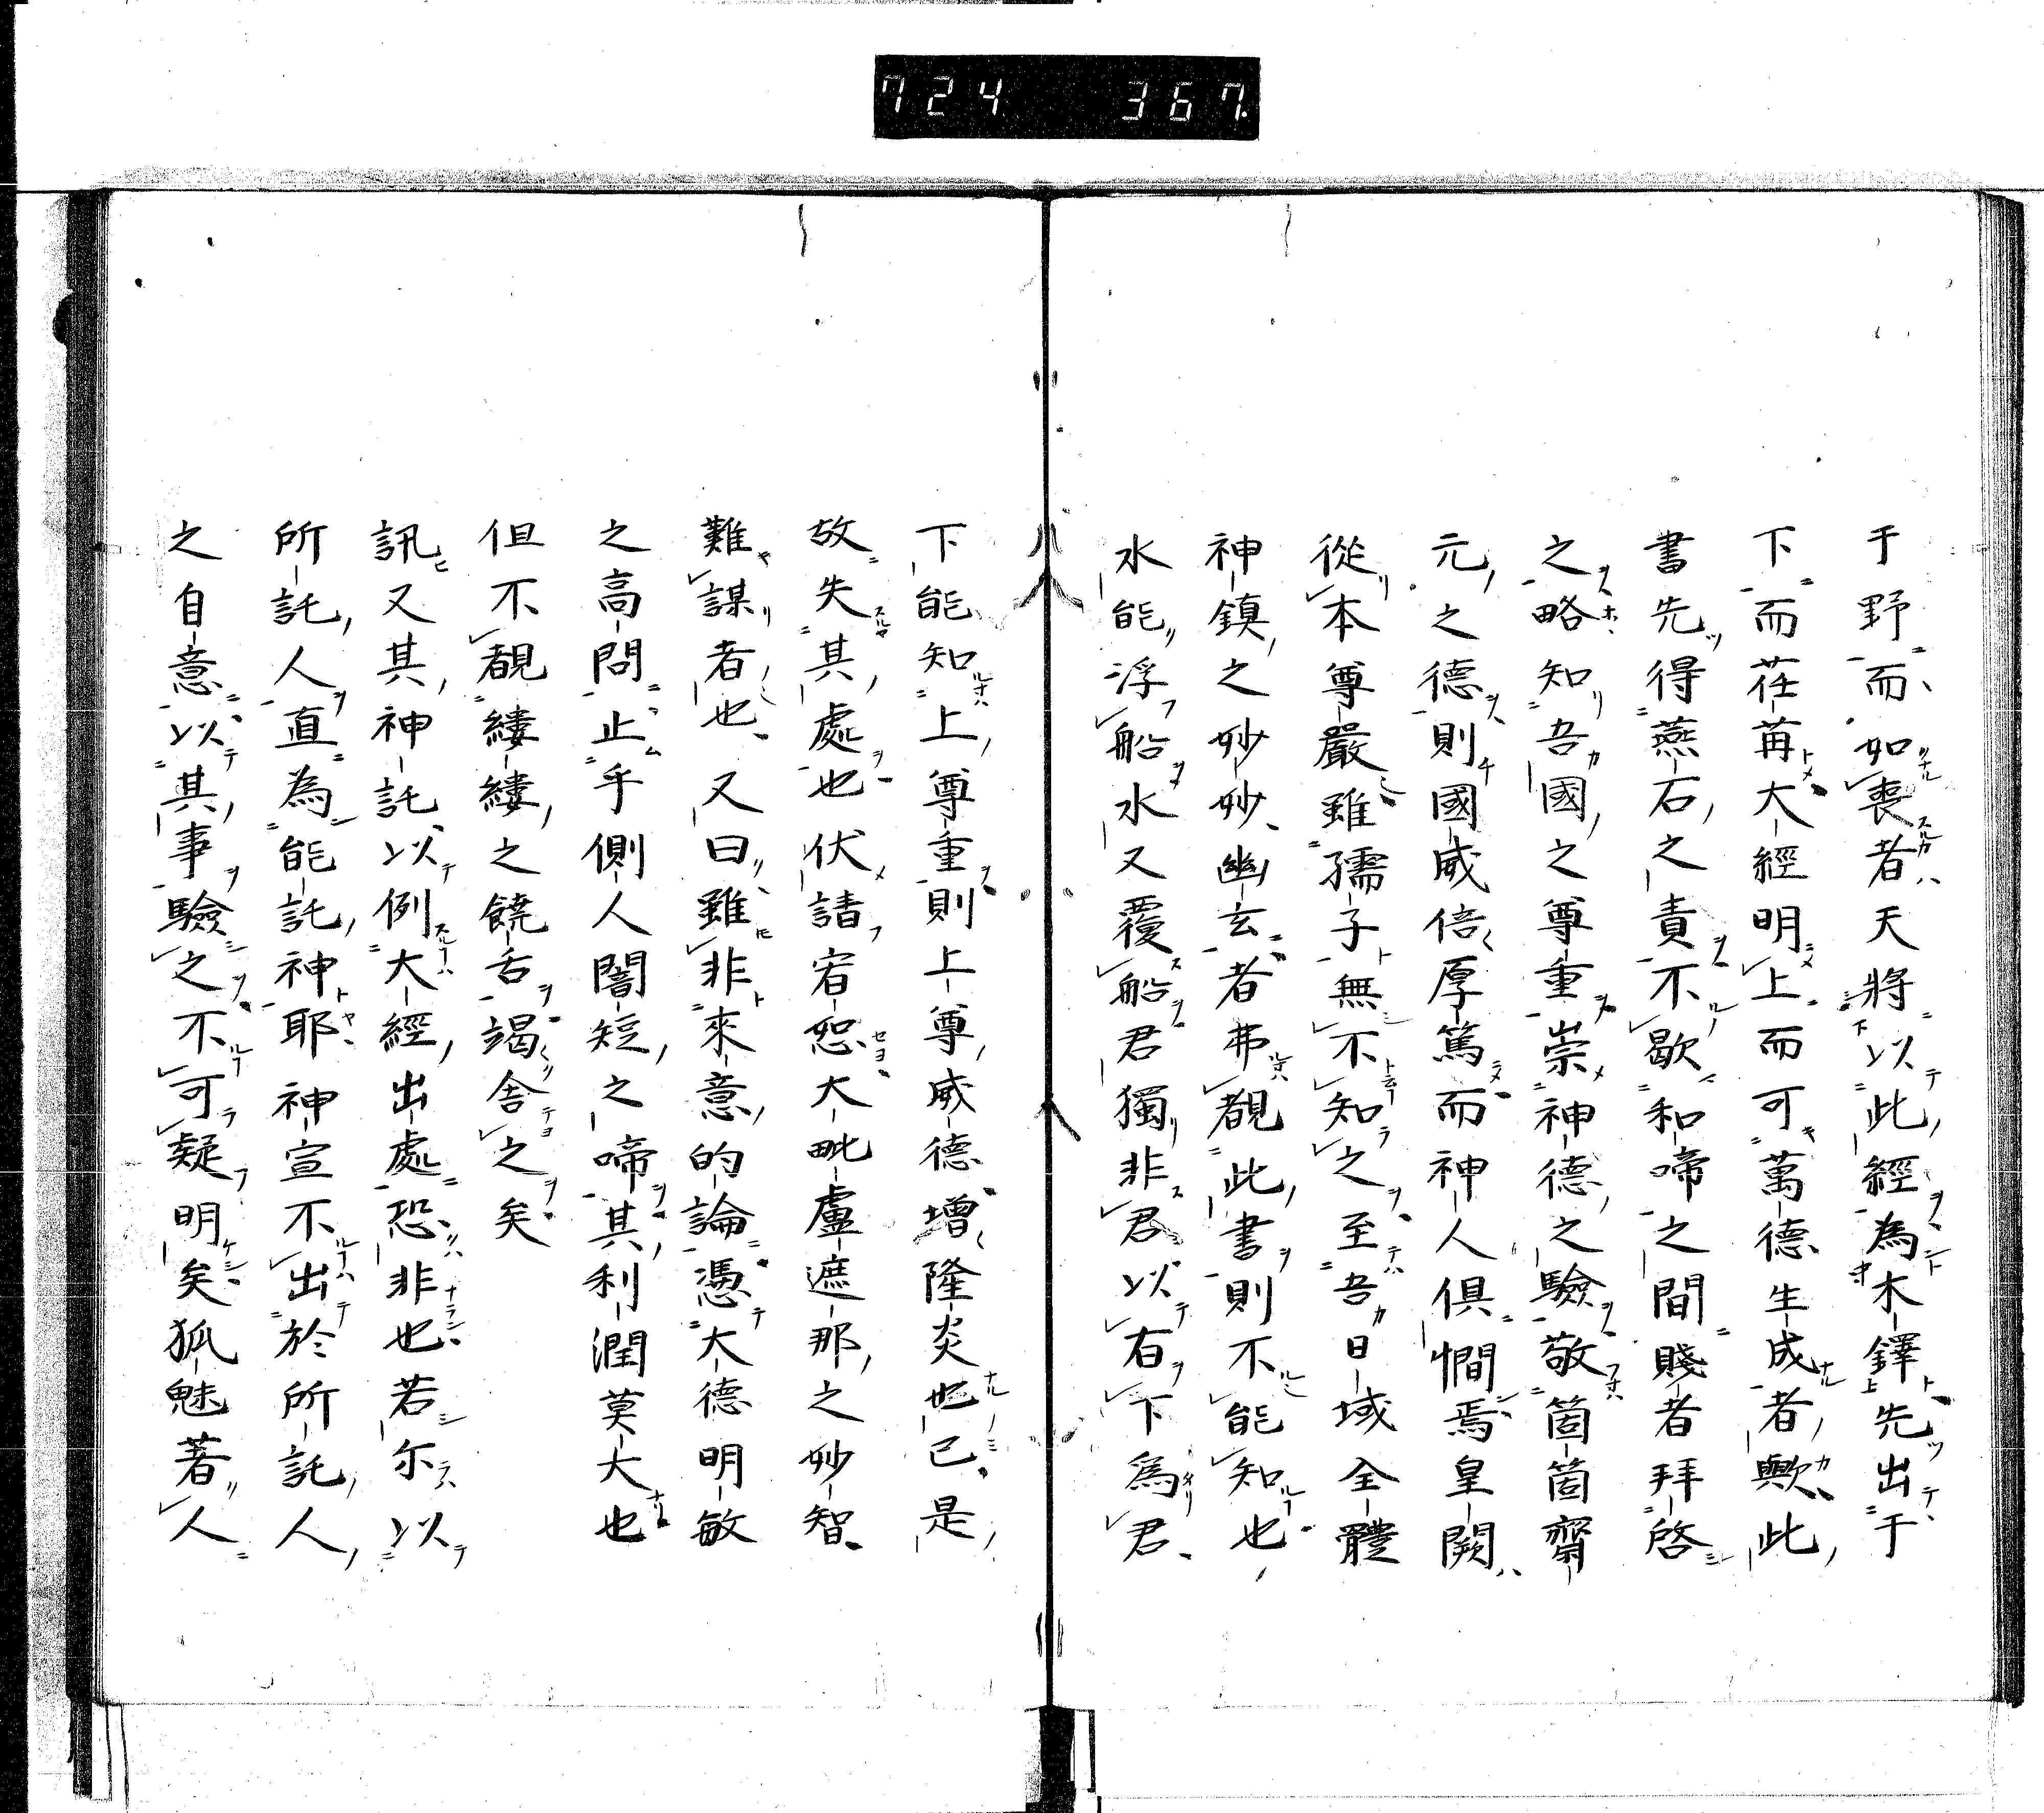 724 367.
于野而如喪者天將以此經為木鐸先出于
下而荏苒大經明上而可萬德生成者歟此
書先得燕石之責不歇和啼之間賤者拜啓
之略知吾國之尊重崇神德之驗敬箇箇齊
元之德則國威倍厚篤而神人俱憪焉皇闕
從本尊嚴雖孺子無不知之至吾日域全體
神鎮之妙妙幽玄者弗覩此書則不能知也
水能浮船水又覆船君獨非君以有下為君
下能知上尊重則上尊威德增隆炎也已是
故失其處也伏請宥恕大毗盧遮那之妙智
難謀者也又曰雖非來意的論憑大德明敏
之高問止乎側人闇短之啼其利潤莫大也
但不覩縷縷之饒舌竭舍之矣
訊又其神託以例大經出處恐非也若尓以
所託人直為能託神耶神宣不出於所託人
之自意以其事驗之不可疑明矣狐魅著人